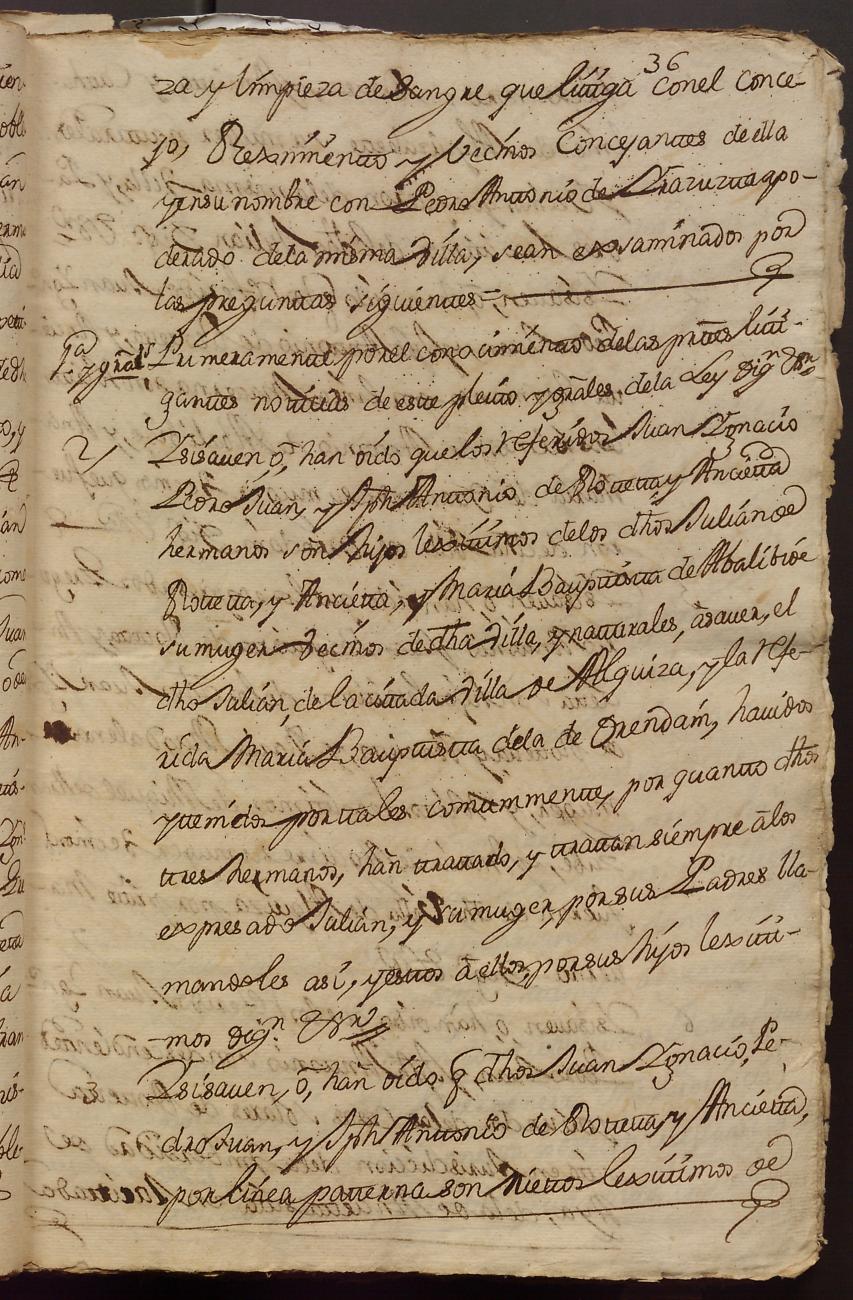 36
za y limpieza de sangre que litiga con el Conce-
jo, Reximiento y Vecinos Conçejantes de ella
y en su nombre con Pedro Antonio de Yrazuzta apo-
derado de la misma Villa, sean exsaminados por
las preguntas siguientes =
1ª y grãl. Primeramente por el conocimiento de las prtes liti-
gantes noticias de este pleito y grãles de la Ley dign &ra
2 Y si saven, õ, han oido que los referidos Juan Ygnacio
Pedro Juan, y Jph Antonio de Rotteta y Ancietta
hermanos son hijos lexitimos de los dhos Julian de
Rotteta, y Ancietta, y Maria Bauptista de Abalibide
su muger Vecinos de dha Villa, y natturales, ã saver, el
dho Julian, de la citada Villa de Alquiza, y la refe-
rida Maria Bauptista de la de Orendain, havidos
y tenidos por tales comunmente, por quanto dhos
ttres hermanos, han ttrattado, y ttrattan siempre ã los
expresado Julian, y su muger, por sus Padres lla-
mandoles asi, y estos ã ellos, por sus hijos lexiti-
mos dign. &ra
3 Y si saven, õ, han oido q dhos Juan Ygnacio, Pe-
dro Juan, y Jph Antonio de Rotteta, y Ancietta,
por linea patterna son Niettos lexitimos de